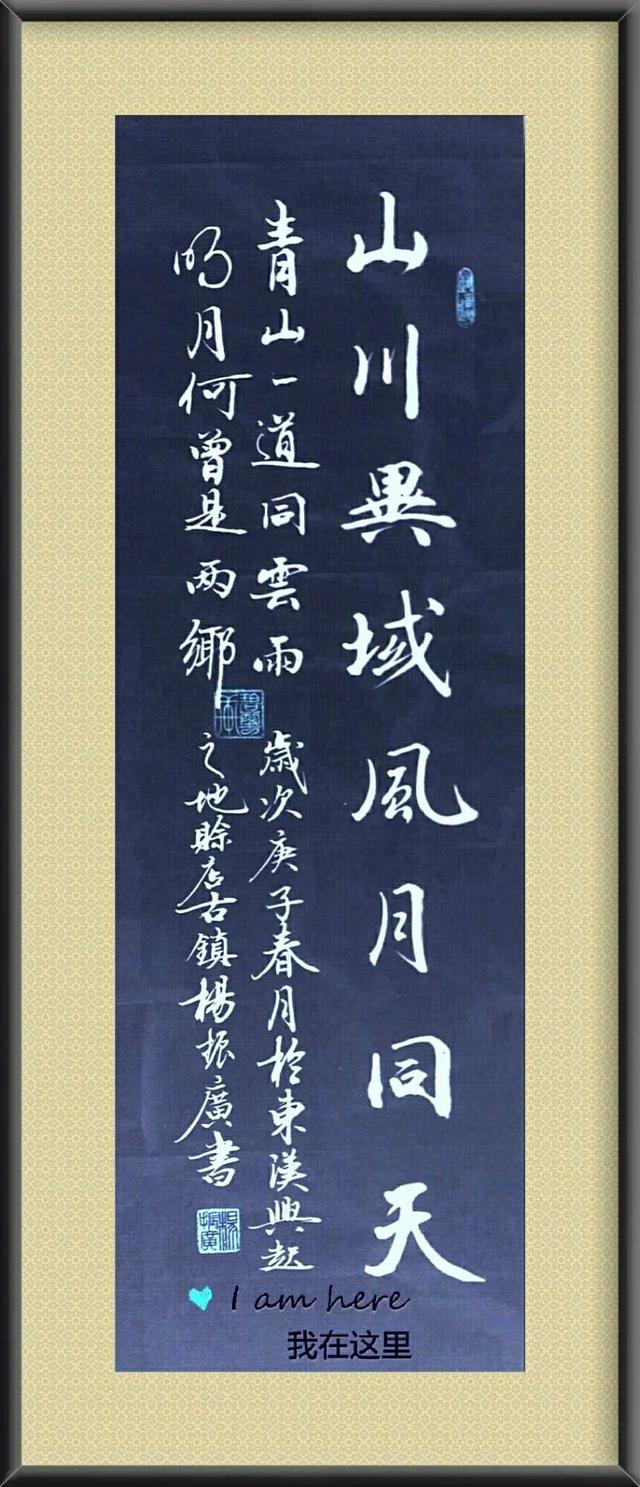 山川異域風月同天
青山一道同雲雨
明月何曾是两鄉
歲次庚子春月於東漢興起
之地賒店古鎮楊振廣書
楊振廣
I am here
我在这里